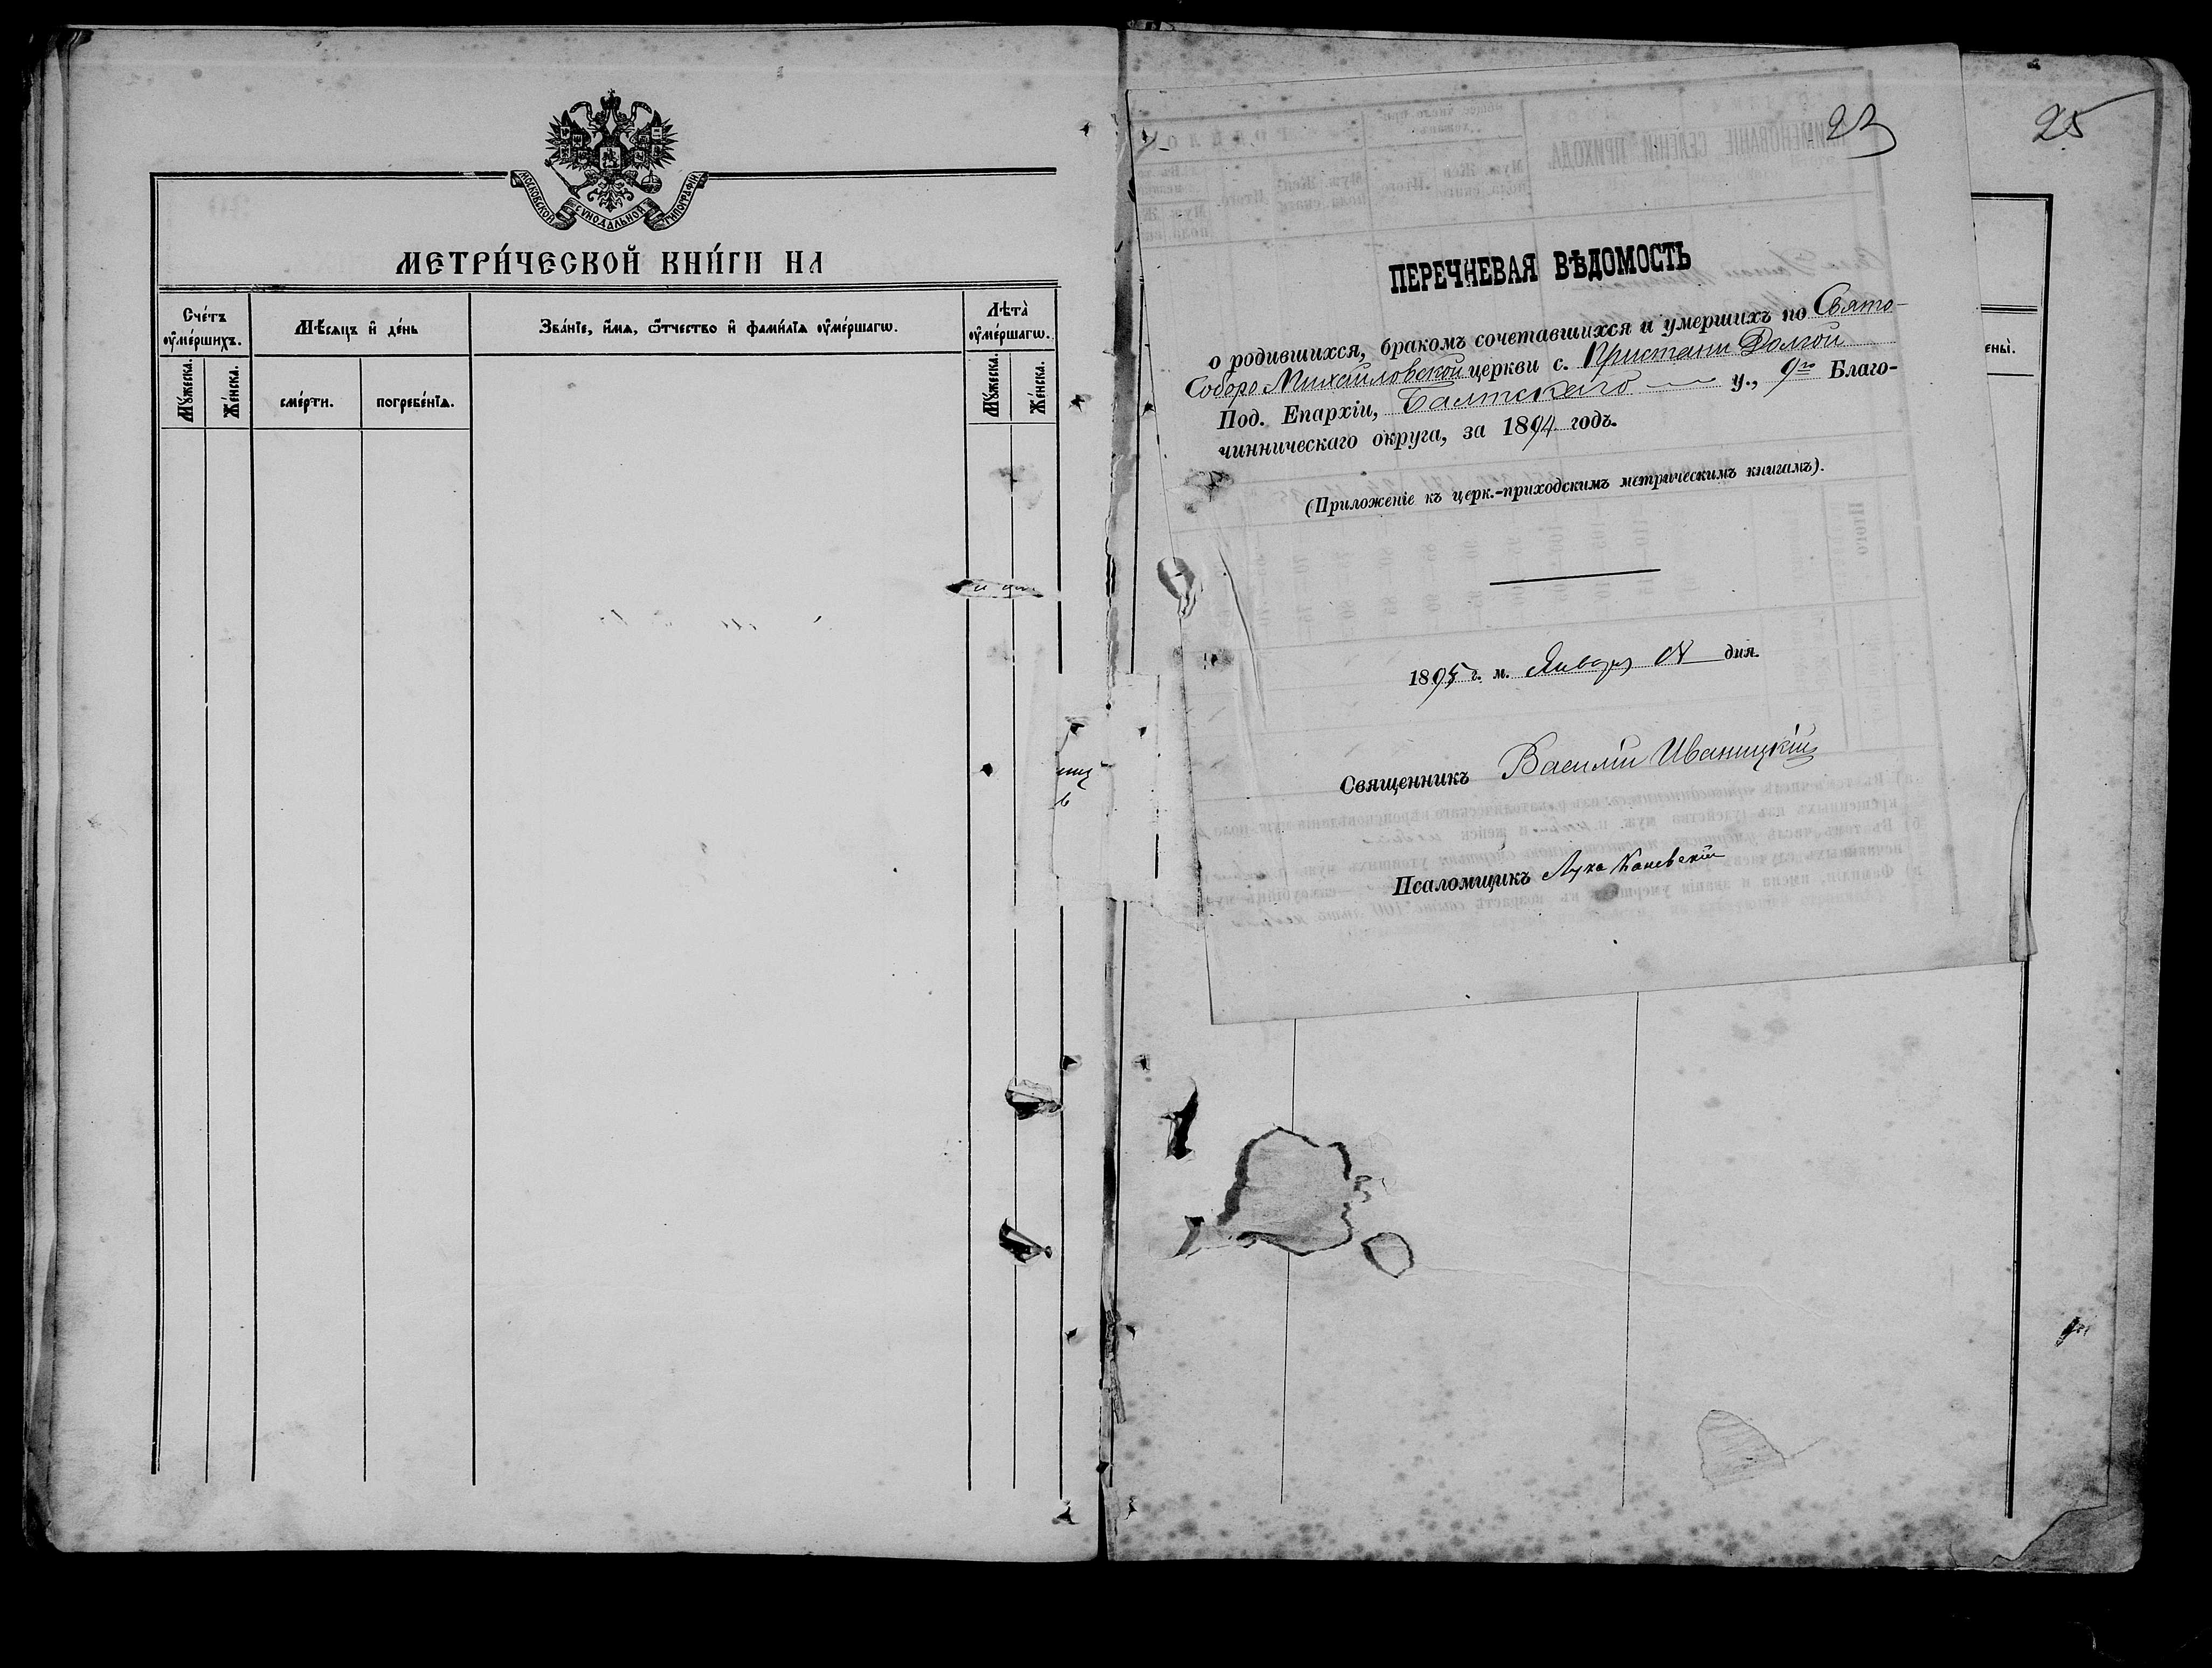 МОСКОВСКОЙ СѴНОДАЛЬНОЙ ТИПОГРАФІИ
МЕТРИ́ЧЕСКОЙ КНИ́ГИ НА
Сче́тъ ᲂу҆ме́ршихъ.
Мꙋ́жеска.
Же́нска.
Мѣ́сяцъ и҆ де́нь
сме́рти.
погребе́нїѧ.
Зва́нїе, и҆́мѧ, ѻ҆́тчество и҆ фами́лїѧ ᲂу҆ме́ршагѡ.
Лѣ́та ᲂу҆ме́ршагѡ.
Мꙋ́жеска.
Же́нска.
23
25
ПЕРЕЧНЕВАЯ ВѢДОМОСТЬ
о родившихся, бракомъ сочетавшихся и умершихъ по Свято-
Соборо Михайловской церкви с. Пристани Долгой
Под. Епархіи, Балтскаго у., 9го Благо-
чинническаго округа, за 1894 годъ.
(Приложеніе къ церк.-приходскимъ метрическимъ книгамъ).
1895 г. м. Января дня.
Священникъ Василій Иваницкій
Псаломщикъ Лука Каневскій